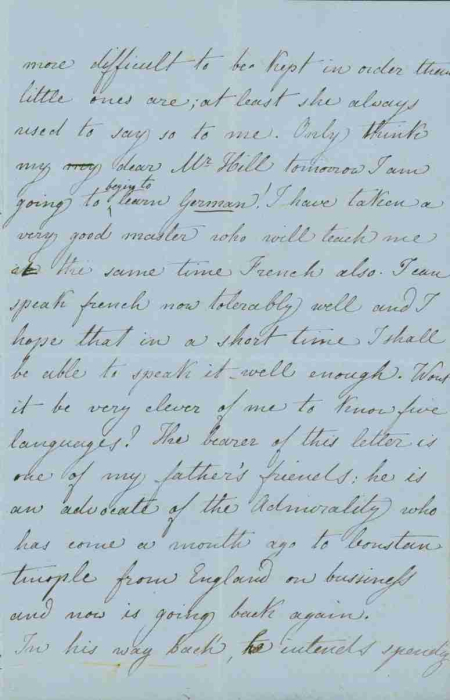 more difficult to be kept in order than
little ones are; at least she always
used to say so to me. Only think
my my dear Mr Hill tomorrow I am
going to begin to learn German! I have taken a
very good master who will teach me
at the same time French also. I can
speak french now tolerably well and I
hope that in a short time I shall
be able to speak it well enough. Wont
it be very clever of me to know five
languages? The bearer of this letter is
one of my father's friends; he is
an advocate of the Admirality who
has come a month ago to Constan
tinople from England on bussiness
and now is going back again.
In his way back, he intends spendg